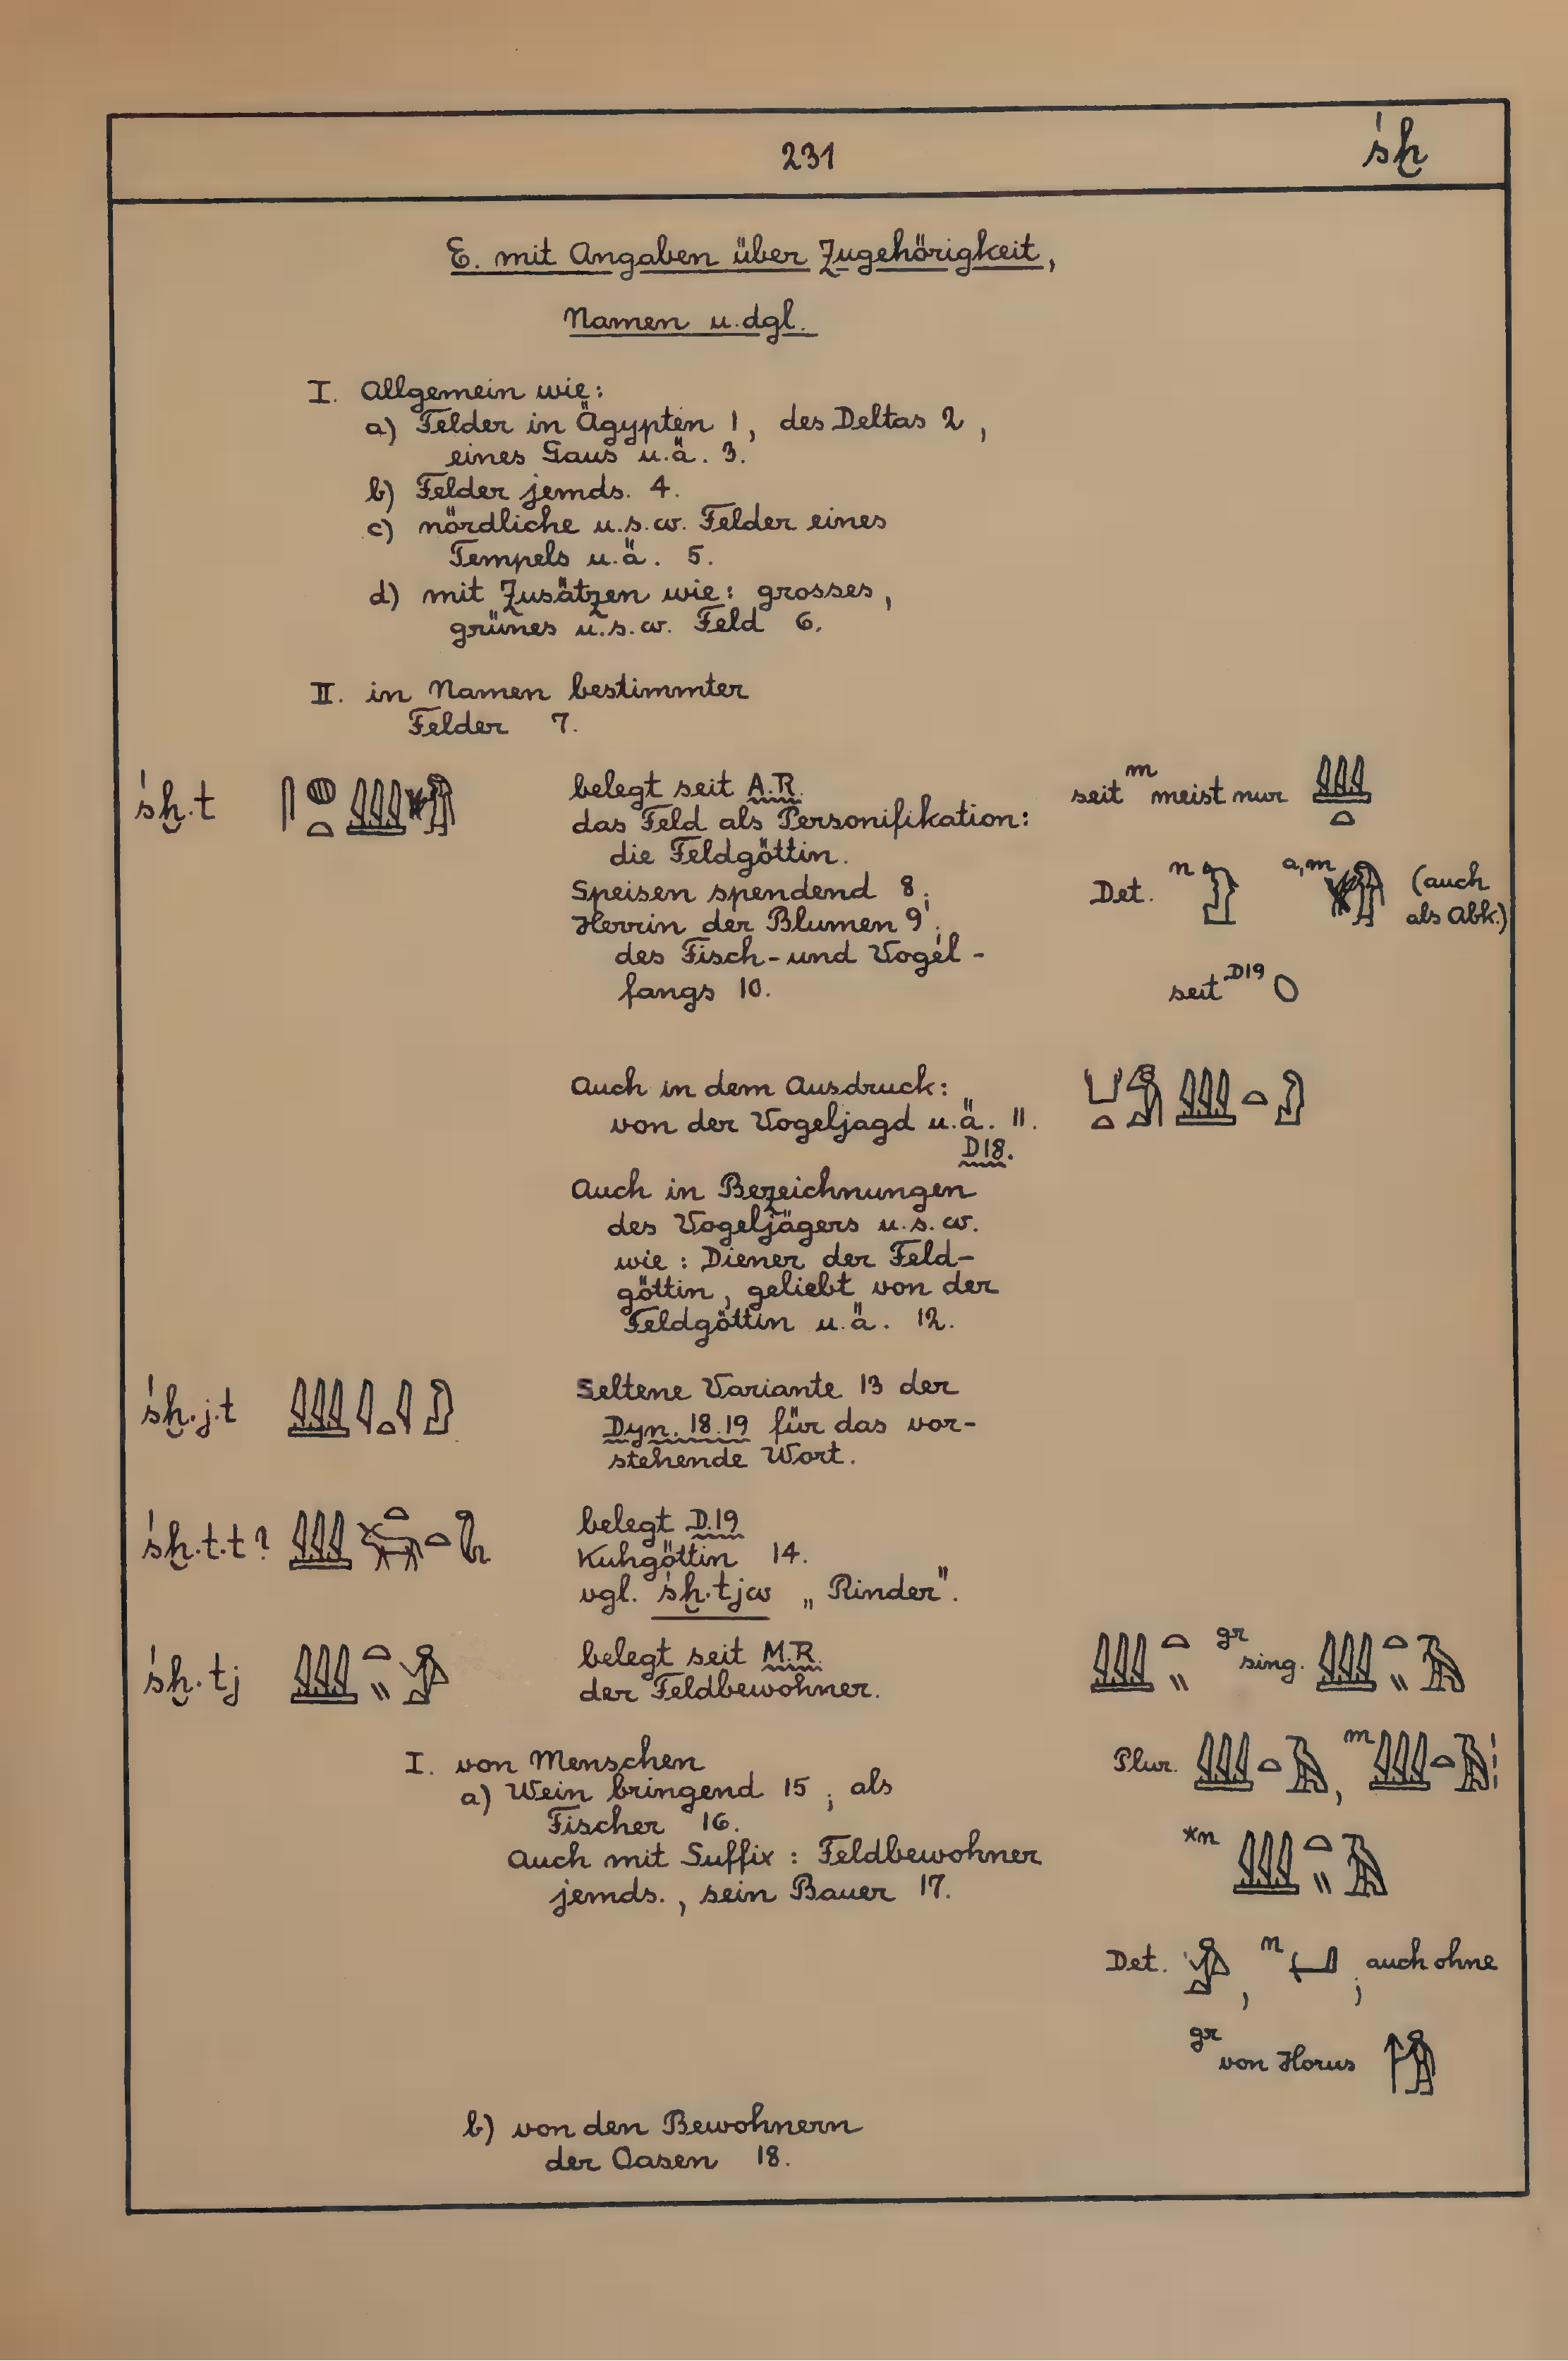 231
śḫ
E. mit Angaben über Zugehörigkeit,
Namen u.dgl.
I. Allgemein wie:
a) Felder in Ägypten 1, des Deltas 2,
eines Gaus u.ä. 3.
b) Felder jemds. 4.
c) nördliche u.s.w. Felder eines
Tempels u.ä. 5.
d) mit Zusätzen wie: grosses,
grünes u.s.w. Feld 6.
II. in Namen bestimmter
Felder 7.
śḫ.t
belegt seit A.R.
das Feld als Personifikation:
die Feldgöttin.
Speisen spendend 8;
Herrin der Blumen 9;
des Fisch- und Vogel-
fangs 10.
seit m meist nur
Det. n a,m (auch
als Abk.)
seit D19
Auch in dem Ausdruck:
von der Vogeljagd u.ä. 11.
D18.
Auch in Bezeichnungen
des Vogeljägers u.s.w.
wie: Diener der Feld-
göttin, geliebt von der
Feldgöttin u.ä. 12.
śḫ.j.t
Seltene Variante 13 der
Dyn. 18.19 für das vor-
stehende Wort.
śḫ.t.t?
belegt D.19
Kuhgöttin 14.
vgl. śḫ.tjw „Rinder".
śḫ.tj
belegt seit M.R.
der Feldbewohner.
gr sing.
Plur. , m
*n
Det. , n ; auch ohne
gr von Horus
I. von Menschen
a) Wein bringend 15; als
Fischer 16.
Auch mit Suffix: Feldbewohner
jemds., sein Bauer 17.
b) von den Bewohnern
der Oasen 18.